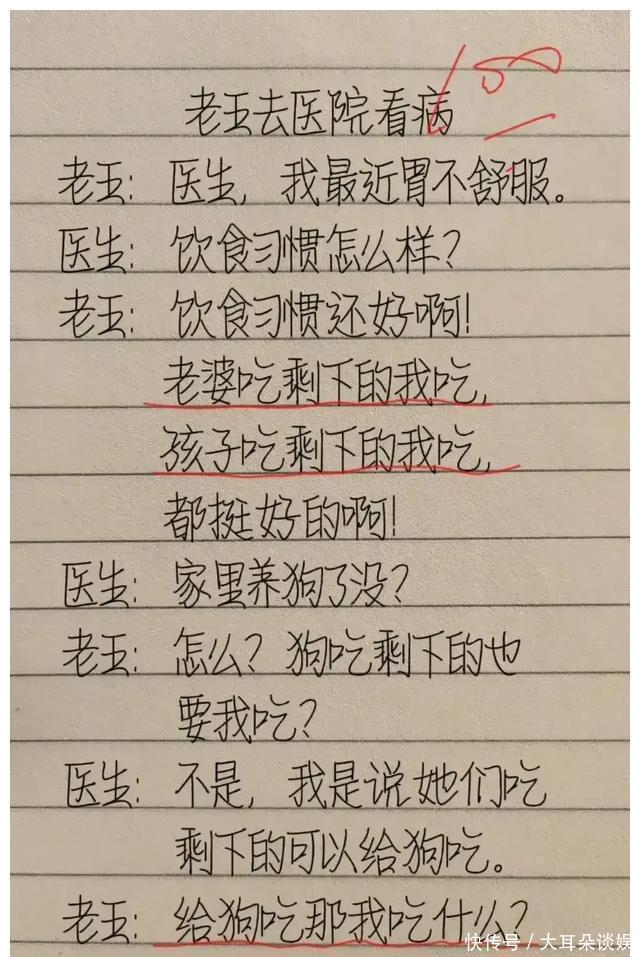 100
老王去医院看病
老王：医生，我最近胃不舒服。
医生：饮食习惯怎么样？
老王：饮食习惯还好啊！
老婆吃剩下的我吃，
孩子吃剩下的我吃，
都挺好的啊！
医生：家里养狗了没？
老王：怎么？狗吃剩下的也
要我吃？
医生：不是，我是说她们吃
剩下的可以给狗吃。
老王：给狗吃那我吃什么？
快传号／大耳朵谈娱